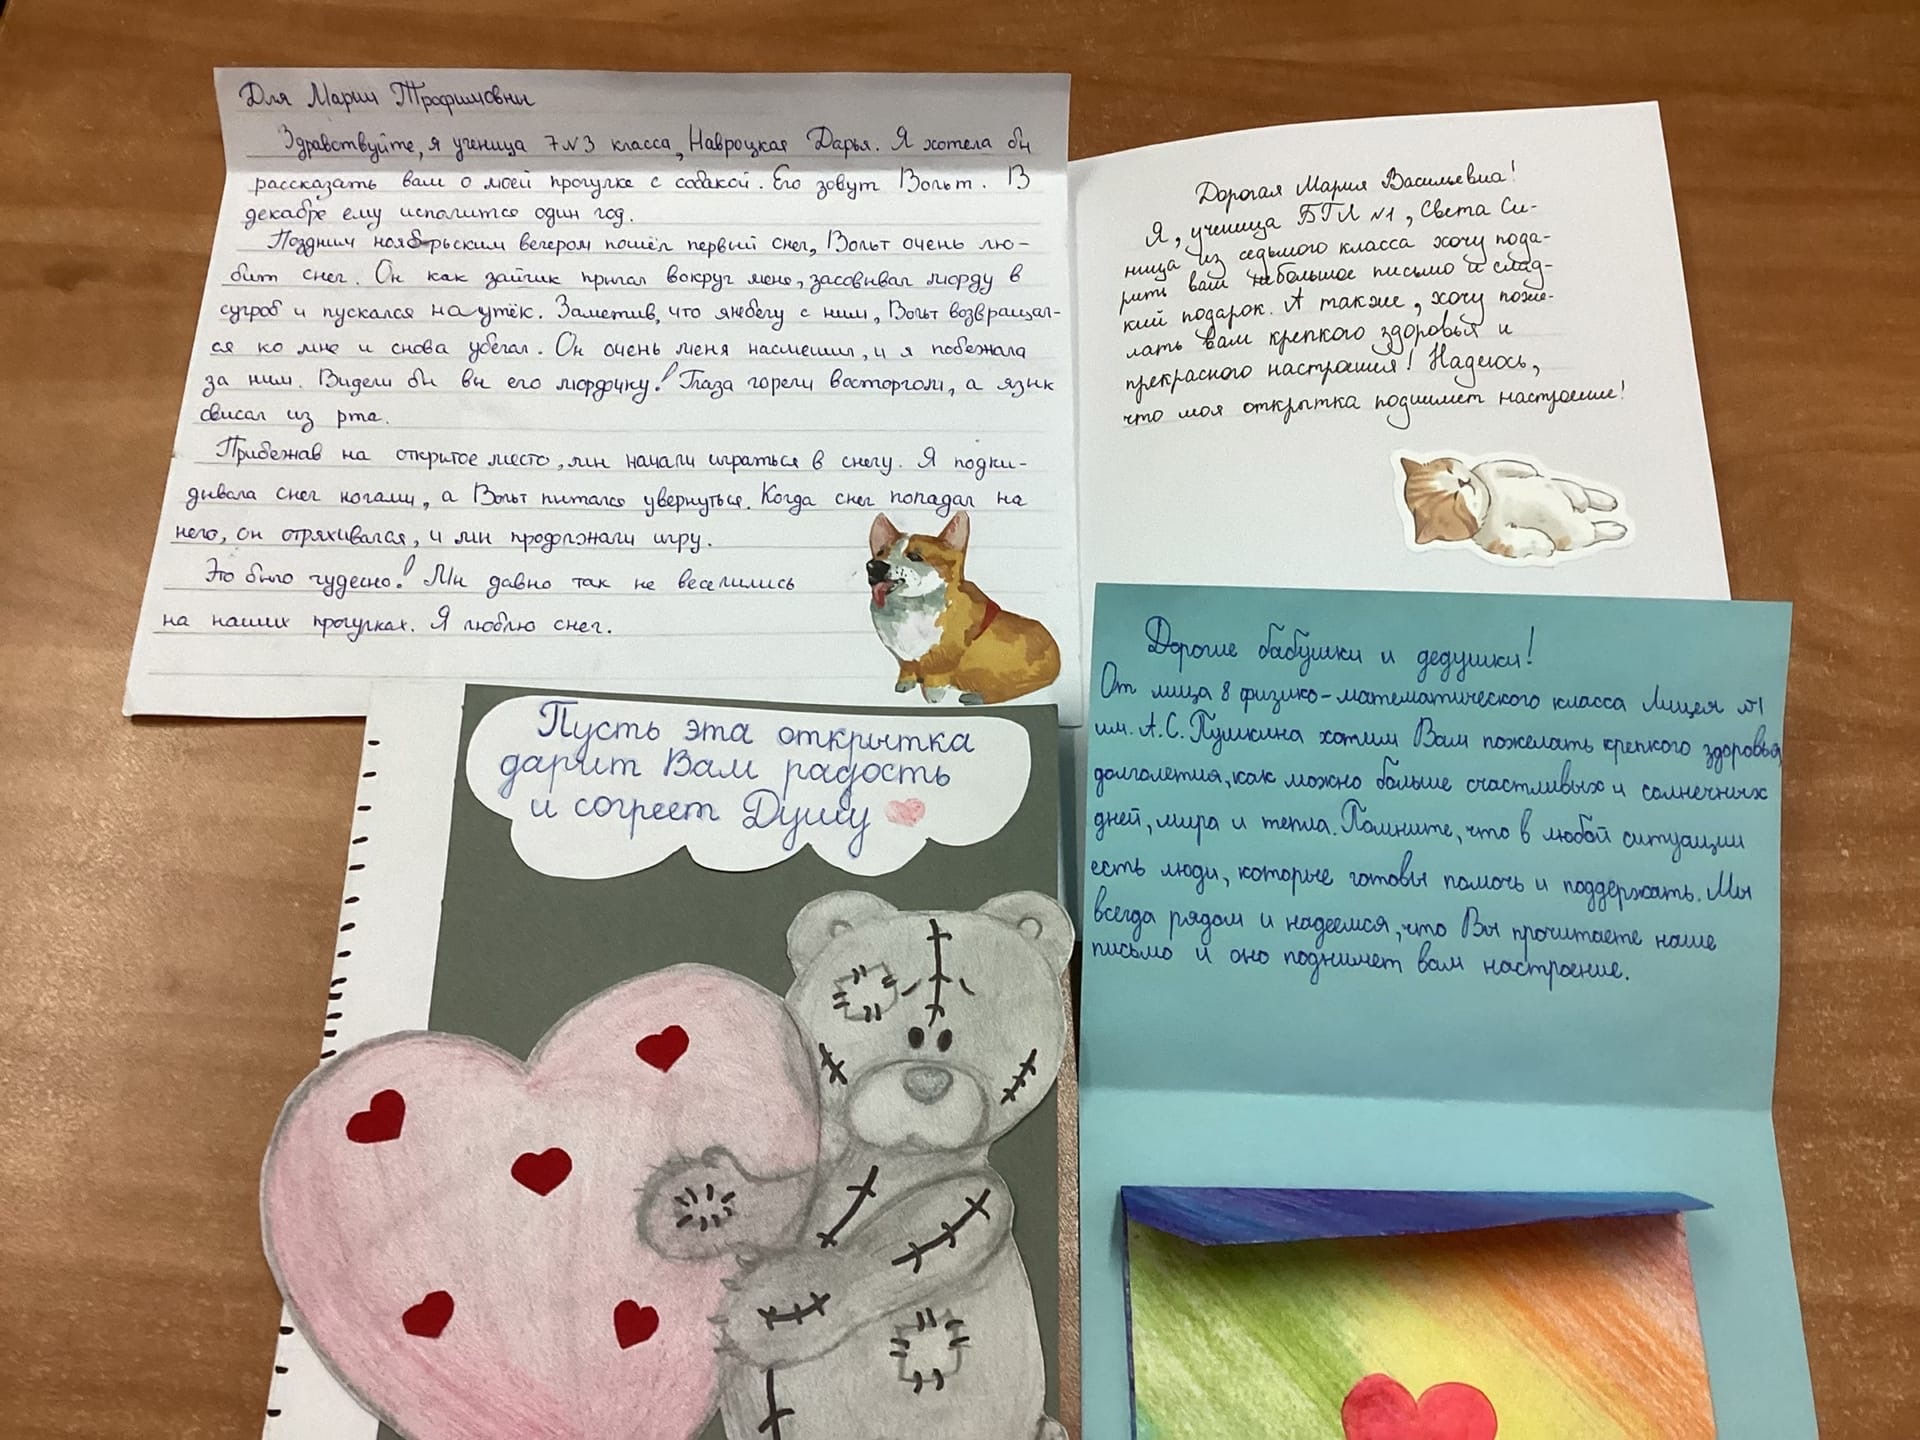 Для Марии Трофимовны
Здравствуйте, я ученица 7 №3 класса, Навроцкая Дарья. Я хотела бы
рассказать вам о моей прогулке с собакой. Его зовут Вольт. В
декабре ему исполнится один год.
Поздним ноябрьским вечером пошёл первый снег, Вольт очень лю-
бит снег. Он как зайчик прыгал вокруг меня, засовывал морду в
сугроб и пускался на утёк. Заметив, что я не бегу с ним, Вольт возвращал-
ся ко мне и снова убегал. Он очень меня насмешил, и я побежала
за ним. Видели бы вы его мордочку! Глаза горели восторгом, а язык
свисал из рта.
Прибежав на открытое место, мы начали играться в снегу. Я подки-
дывала снег ногами, а Вольт пытался увернуться. Когда снег попадал на
него, он отряхивался, и мы продолжали игру.
Это было чудесно! Мы давно так не веселились
на наших прогулках. Я люблю снег.
Дорогая Мария Васильевна!
Я, ученица БГЛ №1, Света Си-
ница из седьмого класса хочу пода-
рить вам небольшое письмо и слад-
кий подарок. А также, хочу поже-
лать вам крепкого здоровья и
прекрасного настроения! Надеюсь,
что моя открытка поднимет настроение!
Пусть эта открытка
дарит Вам радость
и согреет Душу
Дорогие бабушки и дедушки!
От лица 8 физико-математического класса Лицея №1
им. А.С. Пушкина хотим Вам пожелать крепкого здоровья,
долголетия, как можно больше счастливых и солнечных
дней, мира и тепла. Помните, что в любой ситуации
есть люди, которые готовы помочь и поддержать. Мы
всегда рядом и надеемся, что Вы прочитаете наше
письмо и оно поднимет вам настроение.